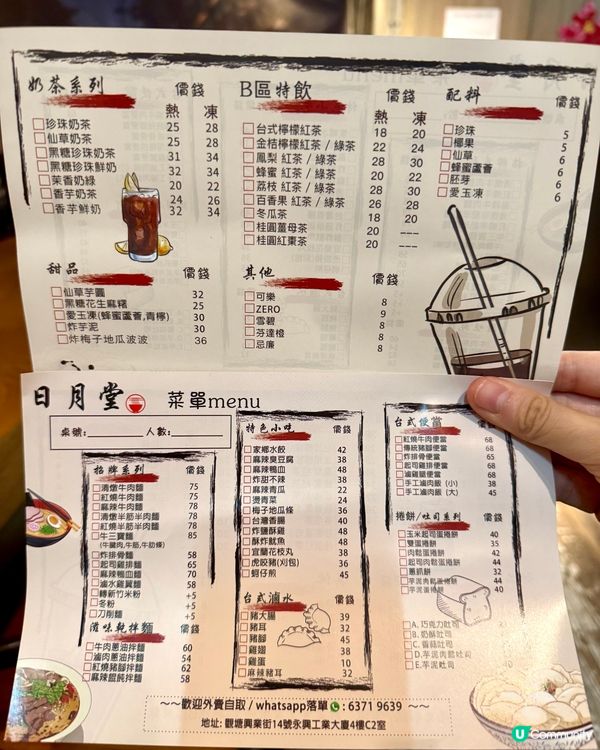 奶茶系列 價錢
熱 凍
珍珠奶茶 25 28
仙草奶茶 25 28
黑糖珍珠奶茶 31 34
黑糖珍珠鮮奶 32 34
茉香奶綠 20 22
香芋奶茶 24 26
香芋鮮奶 32 34
甜品 價錢
仙草芋圓 32
黑糖花生麻糬 25
愛玉凍(蜂蜜蘆薈,青檸) 30
炸芋泥 30
炸梅子地瓜波波 36
B區特飲 價錢
熱 凍
台式檸檬紅茶 18 20
金桔檸檬紅茶 / 綠茶 22 24
鳳梨 紅茶 / 綠茶 28 30
蜂蜜 紅茶 / 綠茶 20 22
荔枝 紅茶 / 綠茶 28 30
百香果 紅茶 / 綠茶 26 28
冬瓜茶 18 20
桂圓薑母茶 20 ---
桂圓紅棗茶 20 ---
其他 價錢
可樂 8
ZERO 9
雪碧 8
芬達橙 8
忌廉 8
配料 價錢
珍珠 5
椰果 5
仙草 6
蜂蜜蘆薈 6
胚芽 6
愛玉凍 6
日月堂 菜單menu
桌號:______ 人數:______
招牌系列 價錢
清燉牛肉麵 75
紅燒牛肉麵 75
麻辣牛肉麵 78
清燉半筋半肉麵 78
紅燒半筋半肉麵 78
牛三寶麵 85
(牛腱肉,牛筋,牛肋條)
炸排骨麵 58
起司雞排麵 65
麻辣鴨血麵 70
滷水雞翼麵 58
轉新竹米粉 +5
冬粉 +5
刀削麵 +5
滋味乾拌麵 價錢
牛肉蔥油拌麵 60
滷肉蔥油拌麵 54
紅燒豬腳拌麵 62
麻辣餛飩拌麵 58
特色小吃 價錢
家鄉水餃 42
麻辣臭豆腐 38
麻辣鴨血 48
炸甜不辣 38
麻辣青瓜 22
燙青菜 24
梅子地瓜條 36
台灣香腸 40
炸鹽酥雞 48
酥炸魷魚 48
宜蘭花枝丸 38
虎咬豬(刈包) 36
蚵仔煎 45
台式滷水 價錢
豬大腸 39
豬耳 32
豬腳 45
雞翅 38
雞蛋 10
麻辣豬耳 32
台式便當 價錢
紅燒牛肉便當 68
傳統豬腳便當 68
炸排骨便當 65
起司雞排便當 68
滷雞腿便當 68
手工滷肉飯 (小) 38
手工滷肉飯 (大) 45
捲餅/吐司系列 價錢
玉米起司蛋捲餅 40
雙蛋捲餅 35
肉鬆蛋捲餅 42
起司肉鬆蛋捲餅 44
蔥抓餅 32
芋泥肉鬆蛋捲餅 44
芋泥蛋捲餅 40
A. 巧克力吐司
B. 奶酥吐司
C. 香蒜吐司
D. 芋泥肉鬆吐司
E. 芋泥吐司 40
~~歡迎外賣自取 / whatsapp落單 : 6371 9639 ~~
地址: 觀塘興業街14號永興工業大廈4樓C2室
U Community